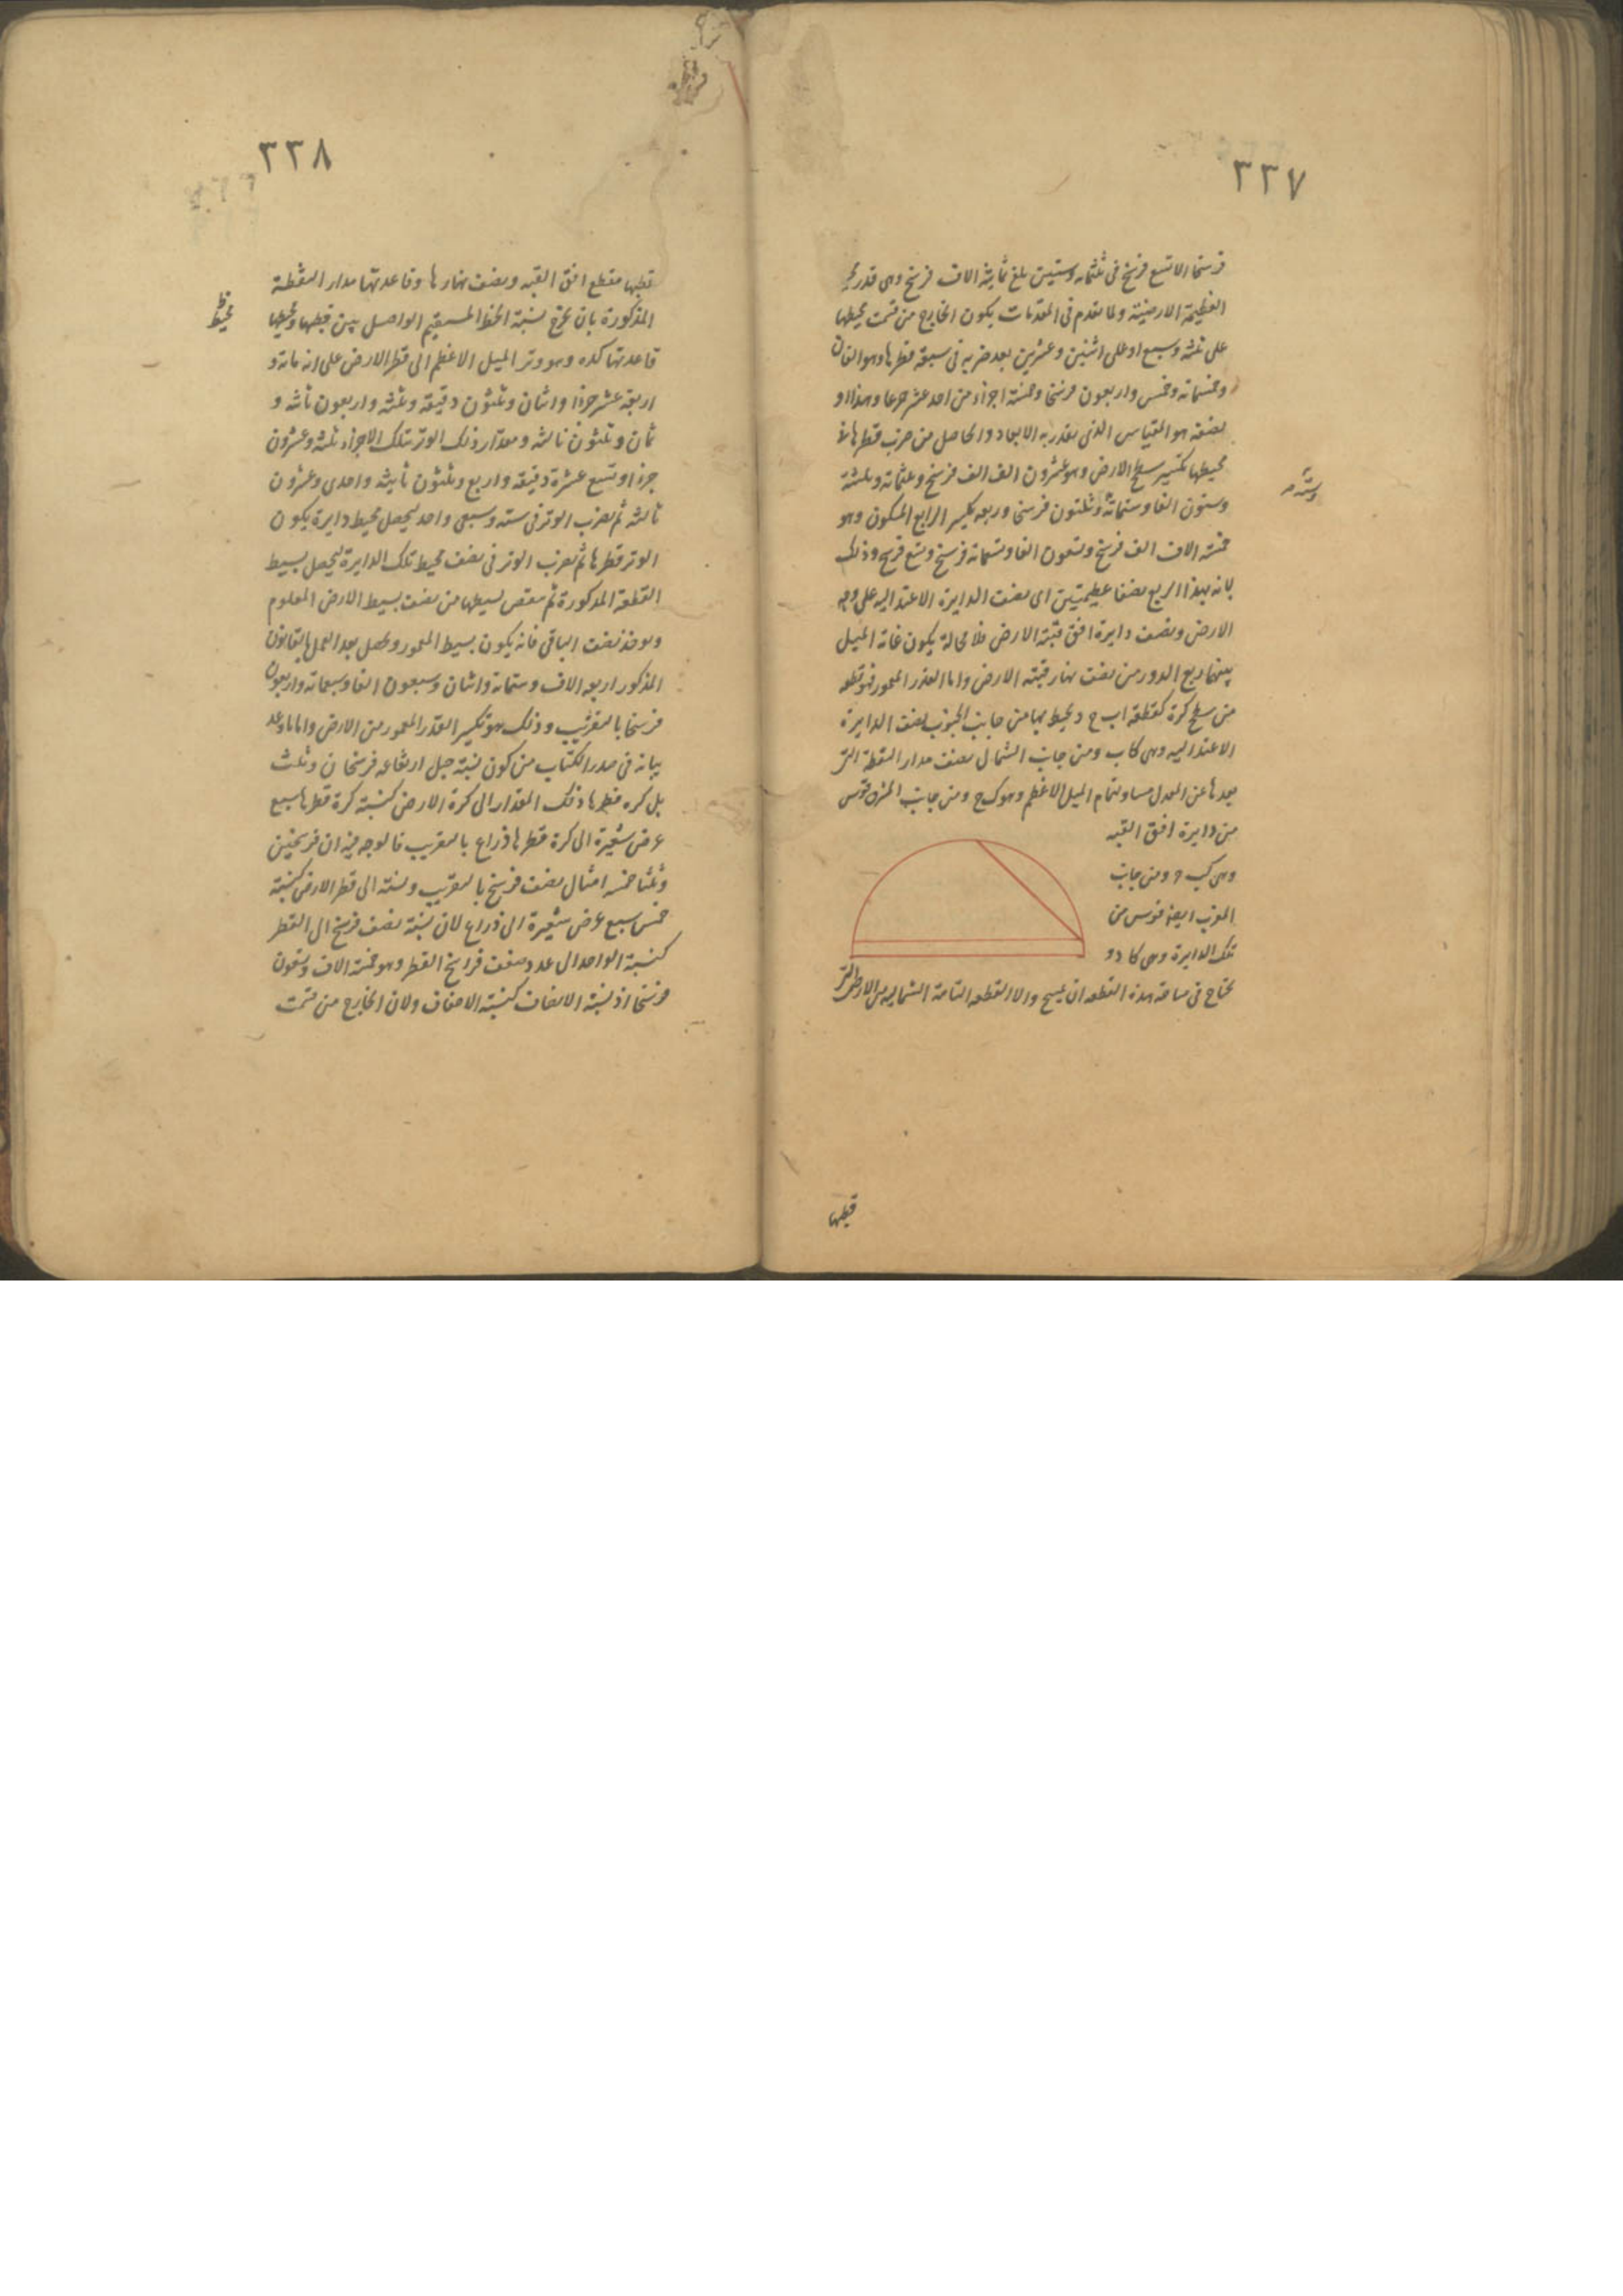 ٣٣٧
فرسخا الا تسع فرسخ فى ثلثمائة وستين بلغ ثمانية الاف فرسخ وهى قدر محيط
العظيمة الارضية ولما تقدم فى المقدمات يكون الخارج من قسمت محيطها
على ثلثة وسبع او على اثنين وعشرين بعد ضربه فى سبعة قطرها وهو الفان
وخمسمائة وخمس واربعون فرسخا وخمسة اجزاء من احد عشر جزءا وهذا او
نصفه هو المقياس الذى يقدر به الابعاد والحاصل من ضرب قطرها فى
محيطها تكسير سطح الارض وهو عشرون الف الف فرسخ وثلثمائة وثلثة
وستون الفا وستمائة وثلثون فرسخا وربعه تكسير الرابع المسكون وهو
وستة
خمسة الاف الف فرسخ وتسعون الفا وتسعمائة فرسخ وتسع فرسخ وذلك
لانه بهذا الربع نصفا عظيمتين اى نصف الدايرة الاعتدالية على وجه
الارض ونصف دايرة افق قبة الارض فلا محالة يكون غاية الميل
بينهما ربع الدور من نصف نهار قبة الارض واما القدر المعمور فهو قطعه
من سطح كرة كقطعة اب ح د يحيط بها من جانب الجنوب نصف الدايرة
الاعتدالية وهى كاب ومن جانب الشمال نصف مدار النقطة التى
بعدها عن المعدل مساو لتمام الميل الاعظم وهو ك ح ومن جانب المشرق قوس
من دايرة افق القبه
وهى كب ح ومن جانب
المغرب ايضا قوس من
تلك الدايرة وهى كا د و
يحتاج فى مساحة هذه القطعه ان يمسح والا القطعه التامة الشماليه من الارض التى
قطبها
٣٣٨
قطبها مقطع افق القبه ونصف نهارها وقاعدتها مدار النقطة
المذكورة بان يخرج نسبة الخط المستقيم الواصل بين قطبها ومحيط
محيط
قاعدتها كده وهو وتر الميل الاعظم الى قطر الارض على انه مائة و
اربعة عشر جزءا واثنان وثلثون دقيقه وثلثه واربعون ثانيه و
ثمان وثلثون ثالثه ومقدار ذلك الوتر بتلك الاجزاء ثلثه وعشرون
جزءا وتسع عشرة دقيقه واربع وثلثون ثانيه واحدى وعشرون
ثالثه ثم نضرب الوتر فى سته وسبعى واحد ليحصل محيط دايرة يكون
الوتر قطرها ثم نضرب الوتر فى نصف محيط تلك الدايرة ليحصل بسيط
القطعة المذكورة ثم ننقص بسيطها من نصف بسيط الارض المعلوم
ويوخذ نصف الباقى فانه يكون بسيط المعمور ويحصل بعد العمل بالقانون
المذكور اربعه الاف وستمائة واثنان وسبعون الفا وسبعمائة واربعون
فرسخا بالتقريب وذلك هو تكسير القدر المعمور من الارض واما ما وعد
بيانه فى صدر الكتاب من كون نسبة جبل ارتفاعه فرسخان وثلث
بل كره قطرها ذلك المقدار الى كرة الارض كنسبة كرة قطرها سبع
عرض شعيرة الى كرة قطرها ذراع بالتقريب فالوجه فيه ان فرسخين
وثلثا خمسة امثال نصف فرسخ بالتقريب ونسبته الى قطر الارض كنسبة
خمس سبع عرض شعيرة الى ذراع لان نسبة نصف فرسخ الى القطر
كنسبة الواحد الى عدد ضعف فراسخ القطر وهو خمسة الاف وتسعون
فرسخا اذ نسبة الانصاف كنسبة الاضعاف ولان الخارج من قسمت